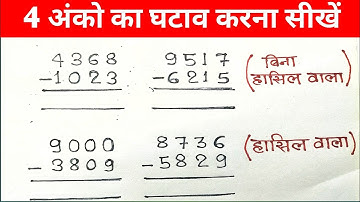 4 अंको का घटाव करना सीखें
4368 9517 (बिना
-1023 -6215 हासिल वाला)
9000 8736 (हासिल वाला)
-3809 -5829